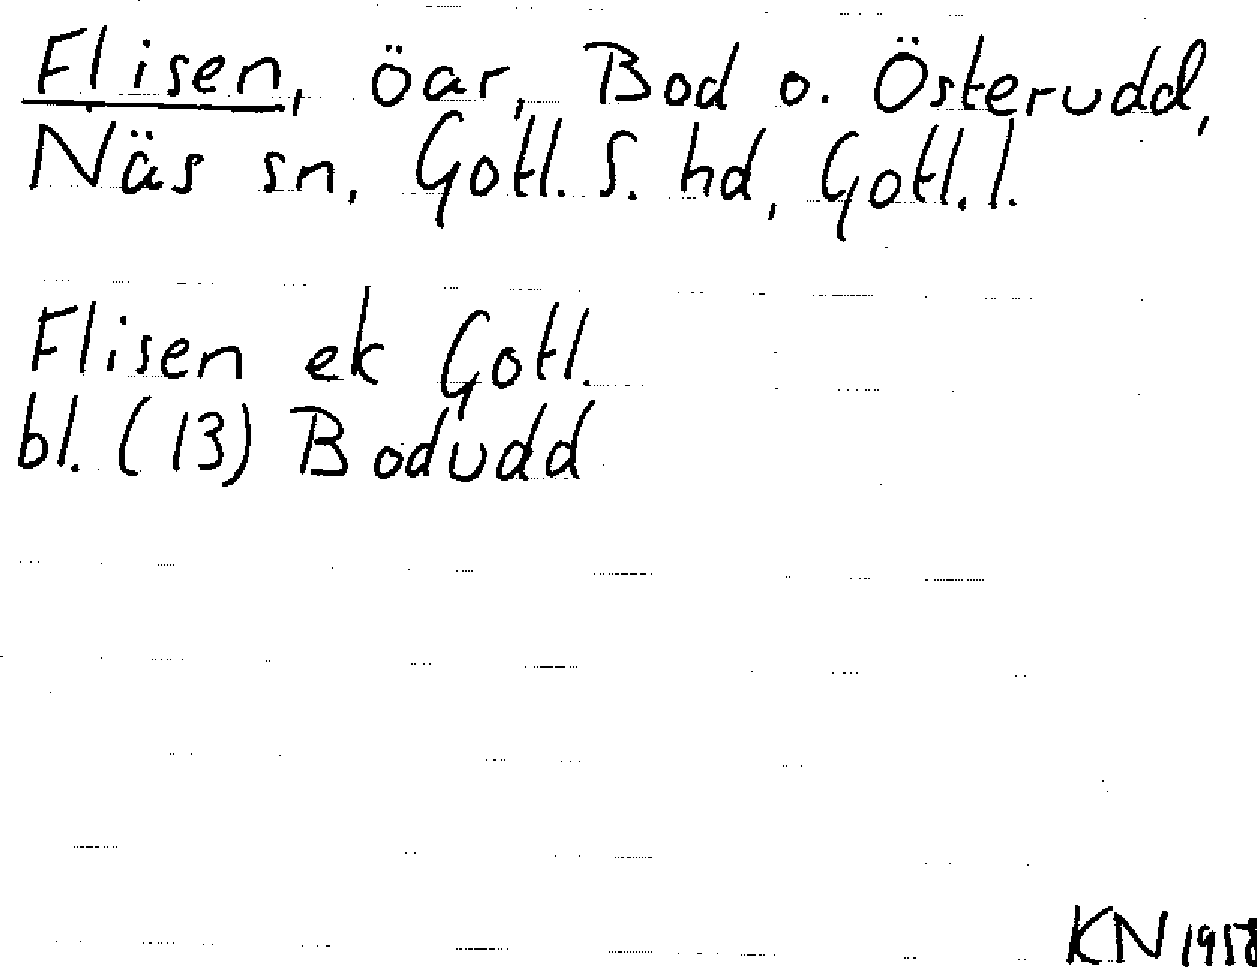 Flisen, öar, Bod o. Österudd,
Näs sn, Gotl. S. hd, Gotl. l.
Flisen ek Gotl.
bl. (13) Bodudd
KN 1958